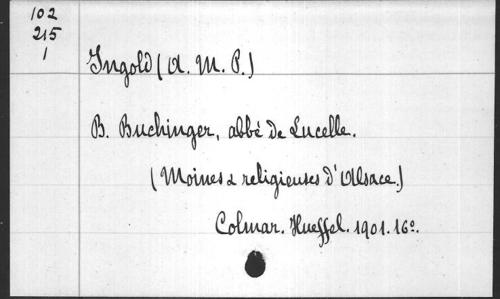 102
215
1
Ingold (A. M. P.)
B. Buchinger, abbé de Lucelle.
(Moines & religieuses d'Alsace.)
Colmar. Hueffel. 1901. 16º.